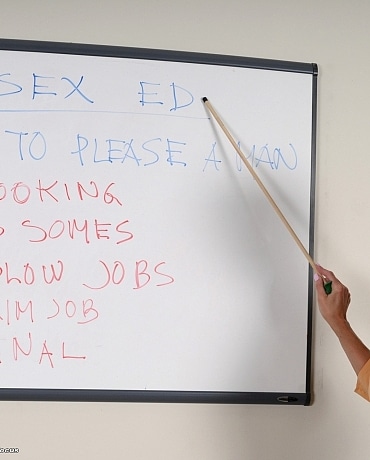 SEX ED
TO PLEASE A MAN
OOKING
SOMES
LOW JOBS
IM JOB
NAL
ocus